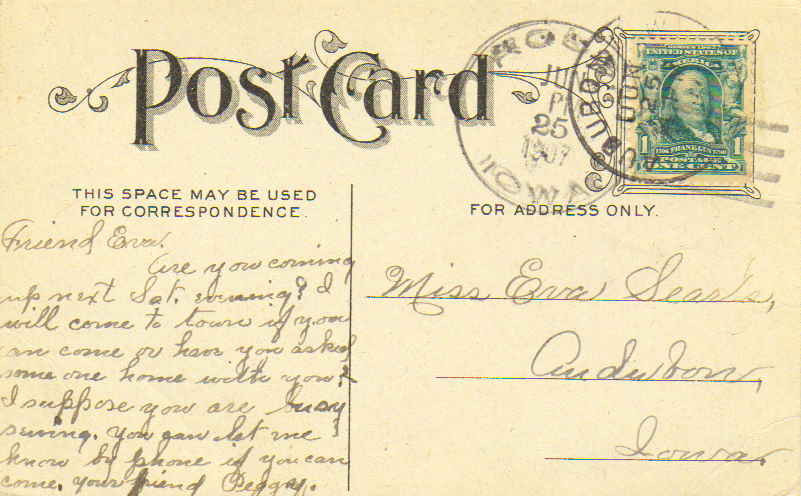 Post Card
THIS SPACE MAY BE USED
FOR CORRESPONDENCE.
FOR ADDRESS ONLY.
JUN
P
25
1907
IOWA
UNITED STATES OF
AMERICA
1 1
FRANKLIN
POSTAGE
ONE CENT
Friend Eva.
Are you coming
up next Sat. evening? I
will come to town if you
can come or have you asked
some one home with you?
I suppose you are busy
sewing. You can let me
know by phone if you can
come. your friend Peggy.
Miss Eva Searls,
Audubon,
Iowa.